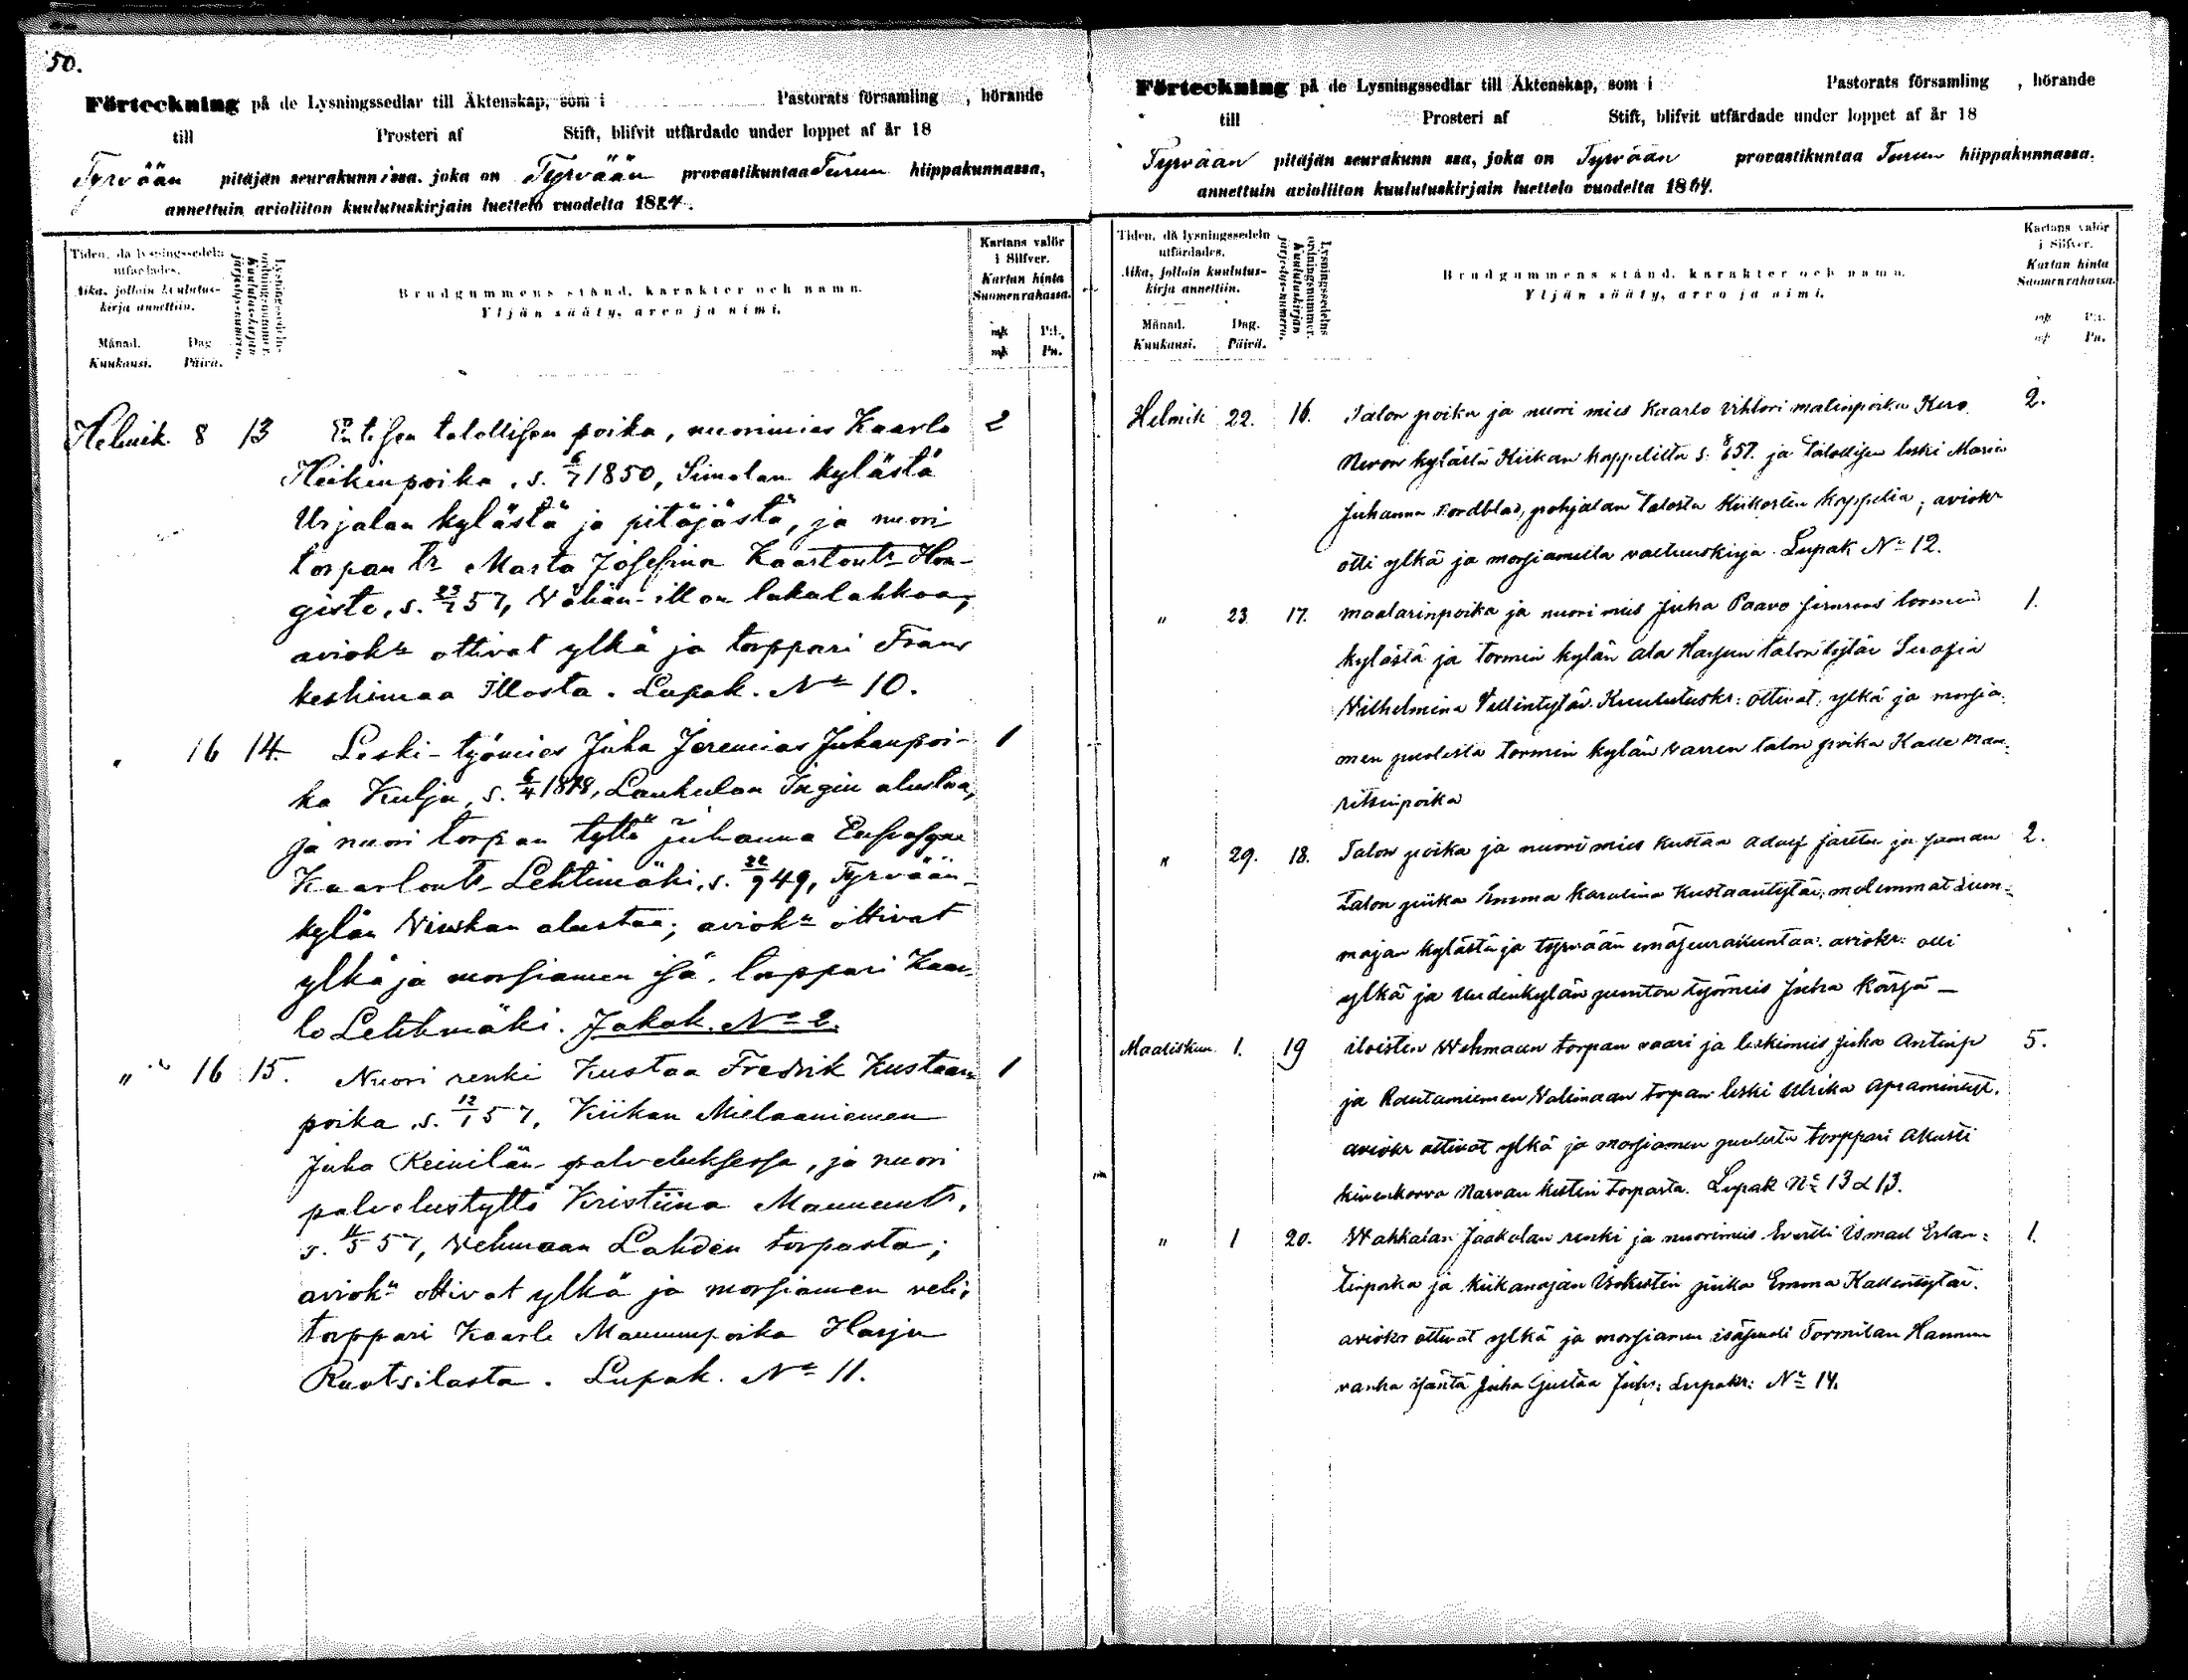 50.
Förteckning på de Lysningssedlar till Äktenskap, som i Pastorats församling , hörande
till Prosteri af Stift, blifvit utfärdade under loppet af år 18
Tyrvään pitäjän seurakunnissa, joka on Tyrvään provastikuntaa Turun hiippakunnassa,
annettuin avioliiton kuulutuskirjain luettelo vuodelta 1884.
Tiden, då lysningssedeln utfärdades.
Aika, jolloin kuulutuskirja annettiin.
Månad. Dag
Kuukausi. Päivä.
Lysningssedelns ordningsnummer.
Kuulutuskirjan järjestys-numero.
Brudgummens stånd, karakter och namn.
Yljän sääty, arvo ja nimi.
Kartans valör i Silfver.
Kartan hinta Suomenrahassa.
mk P:i.
mk Pn.
Helmik. 8 13 Entisen talollisen poika, nuorimies Kaarlo 2
Heikinpoika, s. 6/7 1850, Simolan kylästä
Urjalan kylästä ja pitäjästä, ja nuori
torpan tr Marta Josefina Kaarlontr Hon-
gisto, s. 23/7 57, Vähän-illon lukulahkoa;
aviokn ottivat ylkä ja torppari Frans
keskimaa Illosta. Lupak. No 10.
" 16 14. Leski-työmies Juha Jeremias Juhanpoi- 1
ka Kulju, s. 6/4 1818, Laukulan Ingin alustaa,
ja nuori torpan tyttö Juhanna
Kaarlontr Lehtimäki, s. 22/9 49, Tyrvään-
kylän Niuskan alustaa; aviokn ottivat
ylkä ja morsiamen isä, torppari Kaar-
lo Lehtimäki. Jakok. No 2.
" 16 15. Nuori renki Kustaa Fredrik Kustaan 1
poika, s. 12/1 57, Kiikan Mielaaniemen
Juha Keinilän palveluksessa, ja nuori
palvelustyttö Kristiina Maununtr,
s. 11/5 57, Vehmaan Lahden torpasta;
aviokn ottivat ylkä ja morsiamen veli,
torppari Kaarlo Maununpoika Harju
Ruotsilasta. Lupak. No 11.
Förteckning på de Lysningssedlar till Äktenskap, som i Pastorats församling , hörande
till Prosteri af Stift, blifvit utfärdade under loppet af år 18
Tyrvään pitäjän seurakunnssa, joka on Tyrvään provastikuntaa Turun hiippakunnassa,
annettuin avioliiton kuulutuskirjain luettelo vuodelta 1884.
Tiden, då lysningssedeln utfärdades.
Aika, jolloin kuulutuskirja annettiin.
Månad. Dag.
Kuukausi. Päivä.
Lysningssedelns ordningsnummer.
Kuulutuskirjan järjestys-numero.
Brudgummens stånd, karakter och namn.
Yljän sääty, arvo ja nimi.
Kartans valör i Silfver.
Kartan hinta Suomenrahassa.
mk P:i.
mk Pn.
Helmik 22. 16. Talon poika ja nuori mies Kaarlo Vihtori matinpoika Kero 2.
kylästä Kiikan kappelista s. 8/6 57. ja talollisen leski Maria
Juhanna Nordblad, pohjalan talosta Kiikosten kappelia; aviokr
otti ylkä ja morsiamelta valtuuskirja. Lupak No 12.
" 23 17. maalarinpoika ja nuori mies Juha Paavo tormin 1.
kylästä ja tormin kylän ala Harjun talon tytär Serafia
Wilhelmina Villintytär. Kuulutuskr: ottivat: ylkä ja morsia-
men puolesta tormin kylän Varren talon poika Kalle Mau-
ritsinpoika
" 29. 18. Talon poika ja nuori mies Kustaa Adolf ja saman 2.
talon piika Emma Karolina Kustaantytär, molemmat
majan kylästä ja tyrvään emäseurakuntaa: aviokr: otti
ylkä ja Uudenkylän työmies Juha Kärjä -
Maaliskuu. 1. 19 iloisten Wehmaan torpan vaari ja leskimies Juha Antinp 5.
ja Rautaniemen Valimaan torpan leski Ulrika
aviokr ottivat ylkä ja morsiamen puolesta torppari Akusti
kiveenkorva Narvan torpasta. Lupak No 13 & 13.
" 1 20. Wakkalan Jaakolan renki ja nuorimies Eveliti Ismael Erlan- 1.
tinpoika ja Kiikanojan Isokestin piika Emma Kallentytär.
aviokr ottivat ylkä ja morsiamen isäpuoli Tormilan Hannun
vanha isäntä Juha Gustaa Juhs: Lupakr: No 14.